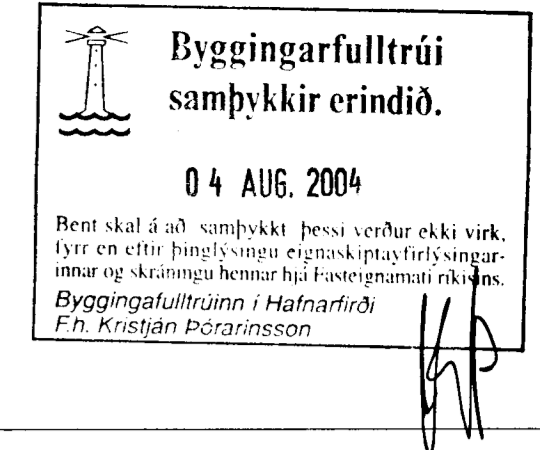 Byggingarfulltrúi
samþykkir erindið.
04 AUG. 2004
Bent skal á að samþykkt þessi verður ekki virk,
fyrr en eftir þinglýsingu eignaskiptayfirlýsingar-
innar og skráningu hennar hjá Fasteignamati ríkisins.
Byggingafulltrúinn í Hafnarfirði
F.h. Kristján Þórarinsson